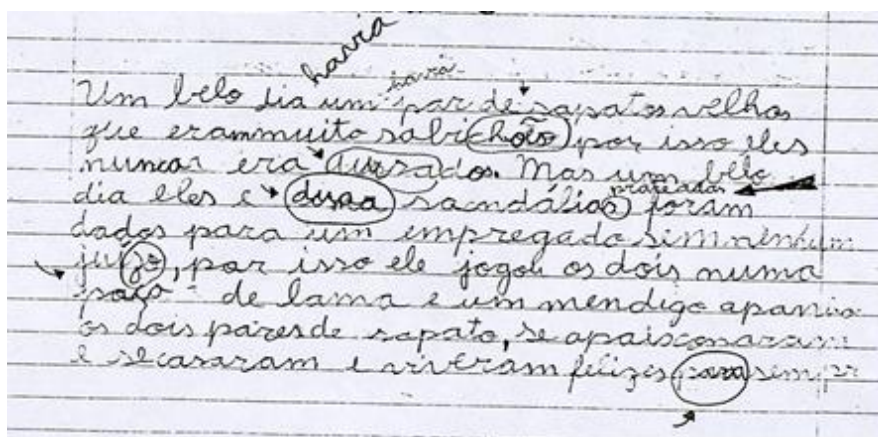 havia
havia
Um belo dia um par de sapatos velhos
que eram muito sabichão por isso eles
nuncar era ados. Mas um belo
prateadas
dia eles e sandálias foram
dados para um empregado sem nenhum
juízo, por isso ele jogou os dois numa
poço de lama e um mendigo
os dois pares de sapato, se apaisconaram
e se casaram e viveram felizes para sempr